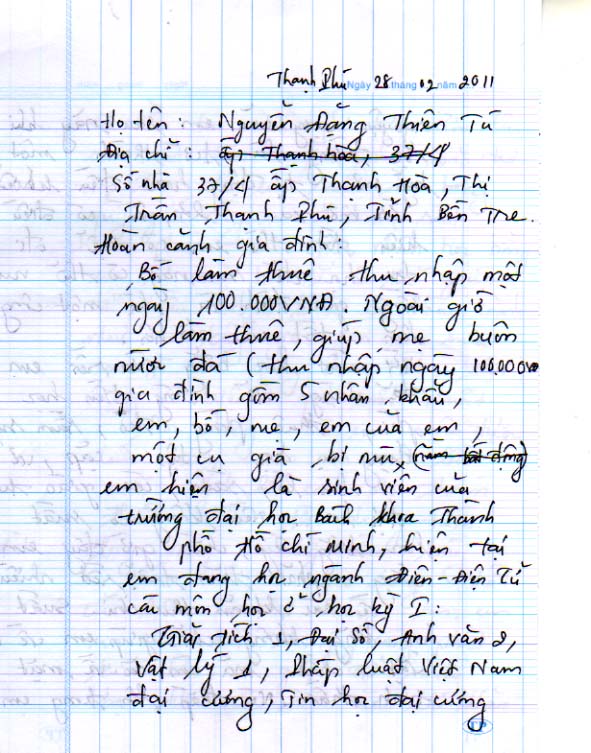 Thạnh Phú Ngày 28 tháng 02 năm 2011
Họ tên : Nguyễn Đặng Thiên Tú
Địa chỉ : ấp Thạnh hòa, 37/4
Số nhà 37/4 ấp Thạnh Hòa, Thị
Trấn Thạnh Phú, Tỉnh Bến Tre.
Hoàn cảnh gia đình :
Bố làm thuê thu nhập một
ngày 100.000VNĐ. Ngoài giờ
làm thuê, giúp mẹ buôn
nước đá (thu nhập ngày 100.000VNĐ
gia đình gồm 5 nhân khẩu,
em, bố, mẹ, em của em,
một cụ già bị mù (nằm bất động)
em hiện là sinh viên của
trường đại học Bách khoa Thành
phố Hồ Chí Minh, hiện tại
em đang học ngành Điện-Điện Tử
các môn học ở học kỳ I :
Giải tích 1, Đại số, Anh văn 2,
Vật lý 1, Pháp luật Việt Nam
đại cương, Tin học đại cương
TP